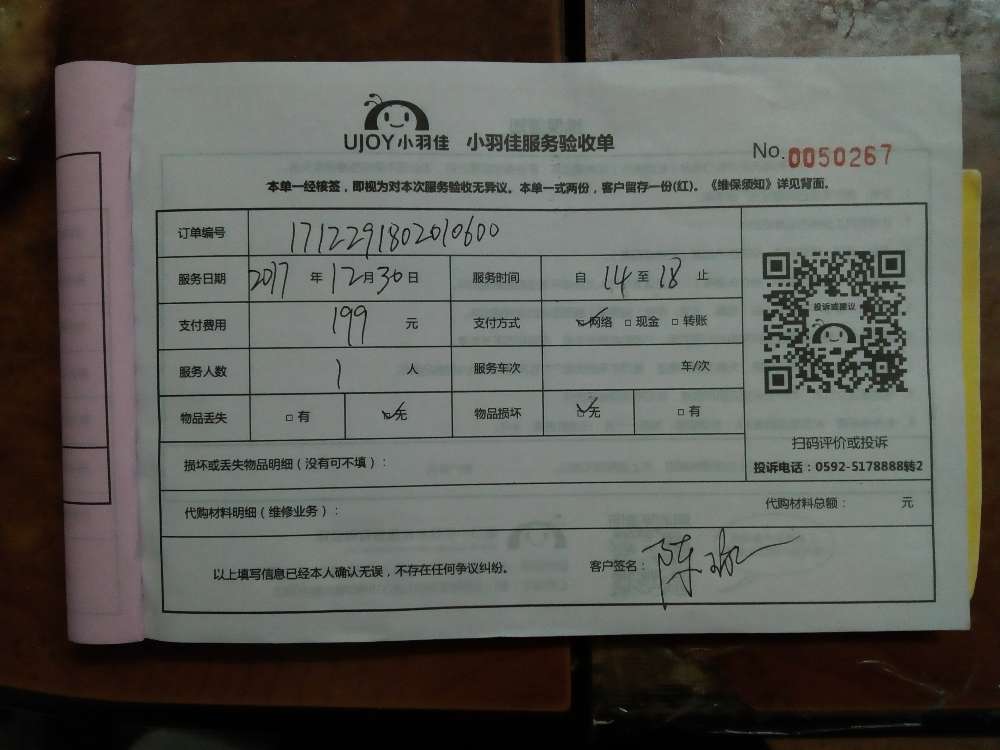 UJOY小羽佳 小羽佳服务验收单
No. 0050267
本单一经核签，即视为对本次服务验收无异议。本单一式两份，客户留存一份(红)。《维保须知》详见背面。
订单编号 1712291802010600
服务日期 2017 年 12 月 30 日 服务时间 自 14 至 18 止
支付费用 199 元 支付方式 ☑网络 □现金 □转账
服务人数 1 人 服务车次 车/次
物品丢失 □有 ☑无 物品损坏 ☑无 □有
投诉或建议
扫码评价或投诉
投诉电话：0592-5178888转2
损坏或丢失物品明细（没有可不填）：
代购材料明细（维修业务）： 代购材料总额： 元
以上填写信息已经本人确认无误，不存在任何争议纠纷。 客户签名：陈